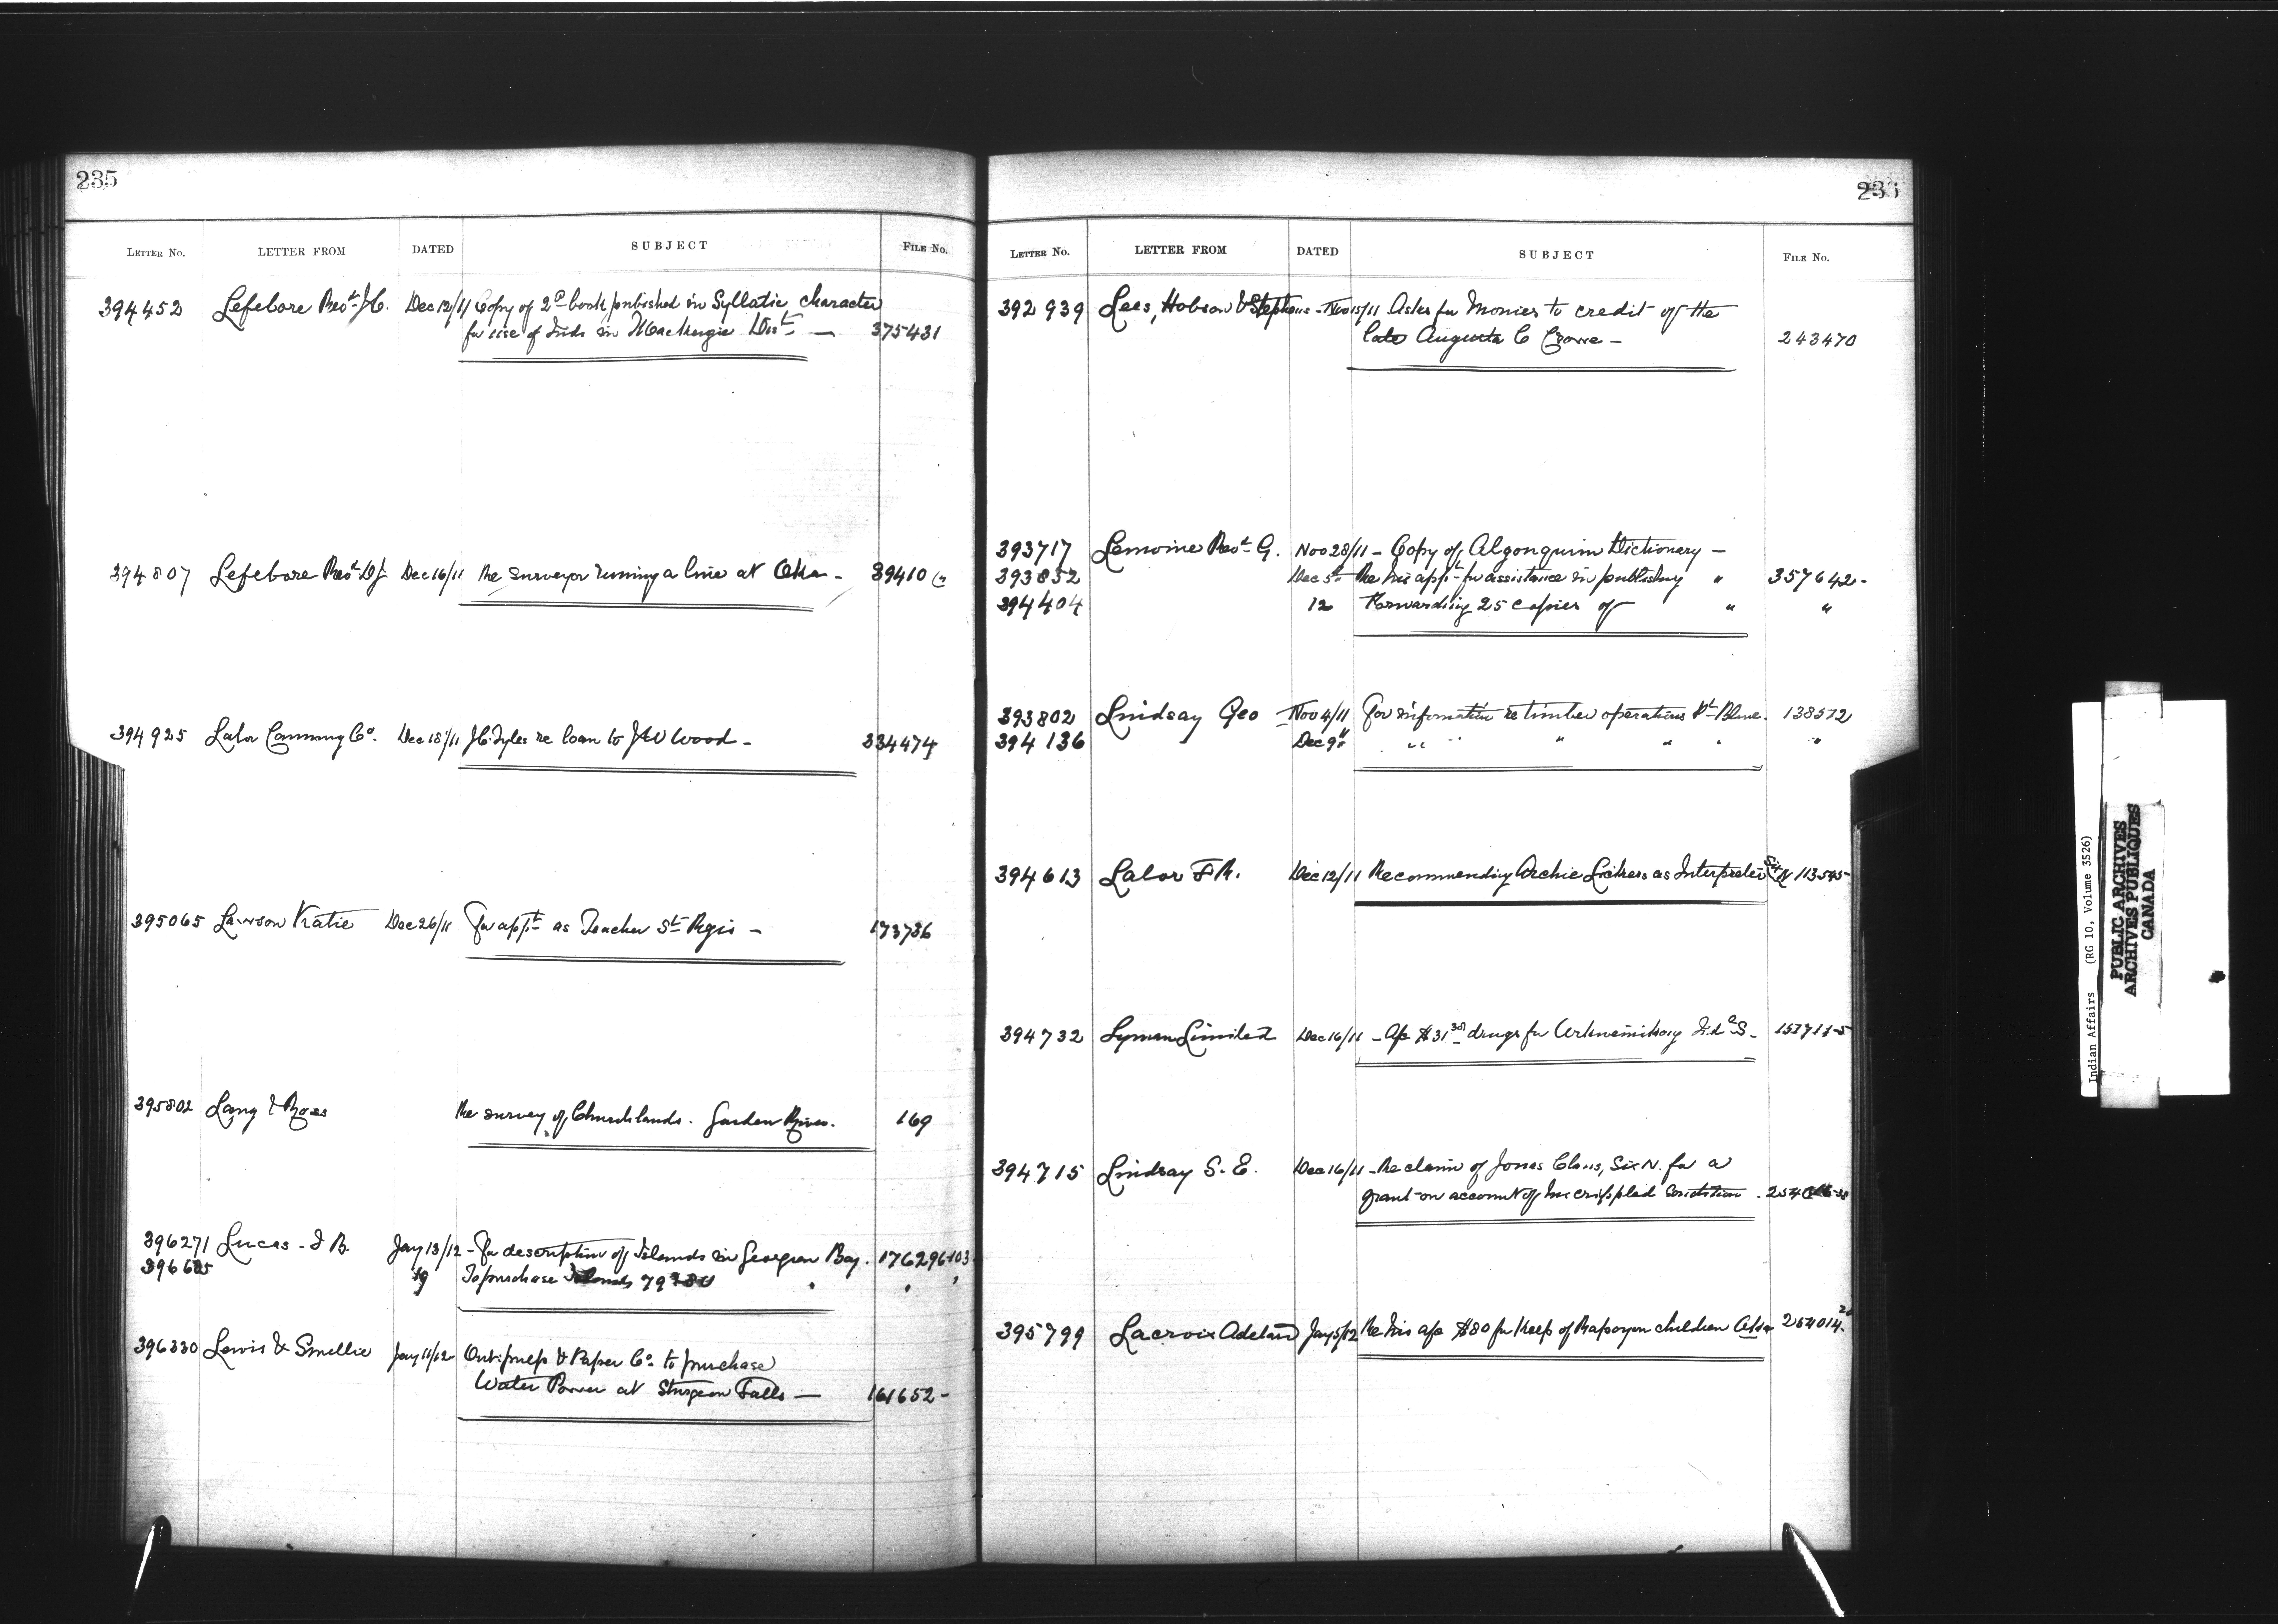 235
LETTER NO. LETTER FROM DATED SUBJECT FILE No.
394452 Lefebvre Revd J.C. Dec 12/11 Copy of 2d book published in Syllabic character
for use of Inds in Mackenzie Dist — 375431
394807 Lefebvre Revd Dec 16/11 Re surveyor running a line at Oka - 39410
394925 Lalor Canning Co. Dec 18/11 re loan to J W Wood - 334474
395065 Lawson Katie Dec 26/11 For appt as Teacher St Regis - 173736
395802 Lang & Ross Re survey of Church lands. Garden River. 169
396271 Lucas - I B. Jany 13/12 - For description of Islands in Georgian Bay. 176296-103
396685 19 To purchase Islands 79 " "
396330 Lewis & Smellie Jany 11/12 Ont. pulp & Paper Co. to purchase
Water Power at Sturgeon Falls — 161652 -
LETTER NO. LETTER FROM DATED SUBJECT FILE NO.
392939 Lees, Hobson & Stephens - Nov 15/11 Asks for Monies to credit of the
late Augusta C Crowe - 243470
393717 Lemoine Revd G. Nov 28/11 - Copy of Algonquin Dictionary -
393852 Dec 5 " Re his appt for assistance in publishing " 357642 -
394404 12 Forwarding 25 copies of " "
393802 Lindsay Geo - Nov 4/11 For information re timber operations Pt Blue. 138512
394136 Dec 9 " " " " "
394613 Lalor F R. Dec 12/11 Recommending Archie as Interpreter Six N 113545
394732 Lyman Limited Dec 16/11 - a/c $31 drugs for Ind S -
394715 Lindsay S. E. Dec 16/11 - Re claim of Jonas Claus, Six N. for a
grant on account of his crippled condition
395799 Lacroix Adelard Jany 5/12 Re his a/c $80 for keep of children 254014
Indian Affairs (RG 10, Volume 3526)
PUBLIC ARCHIVES
ARCHIVES PUBLIQUES
CANADA